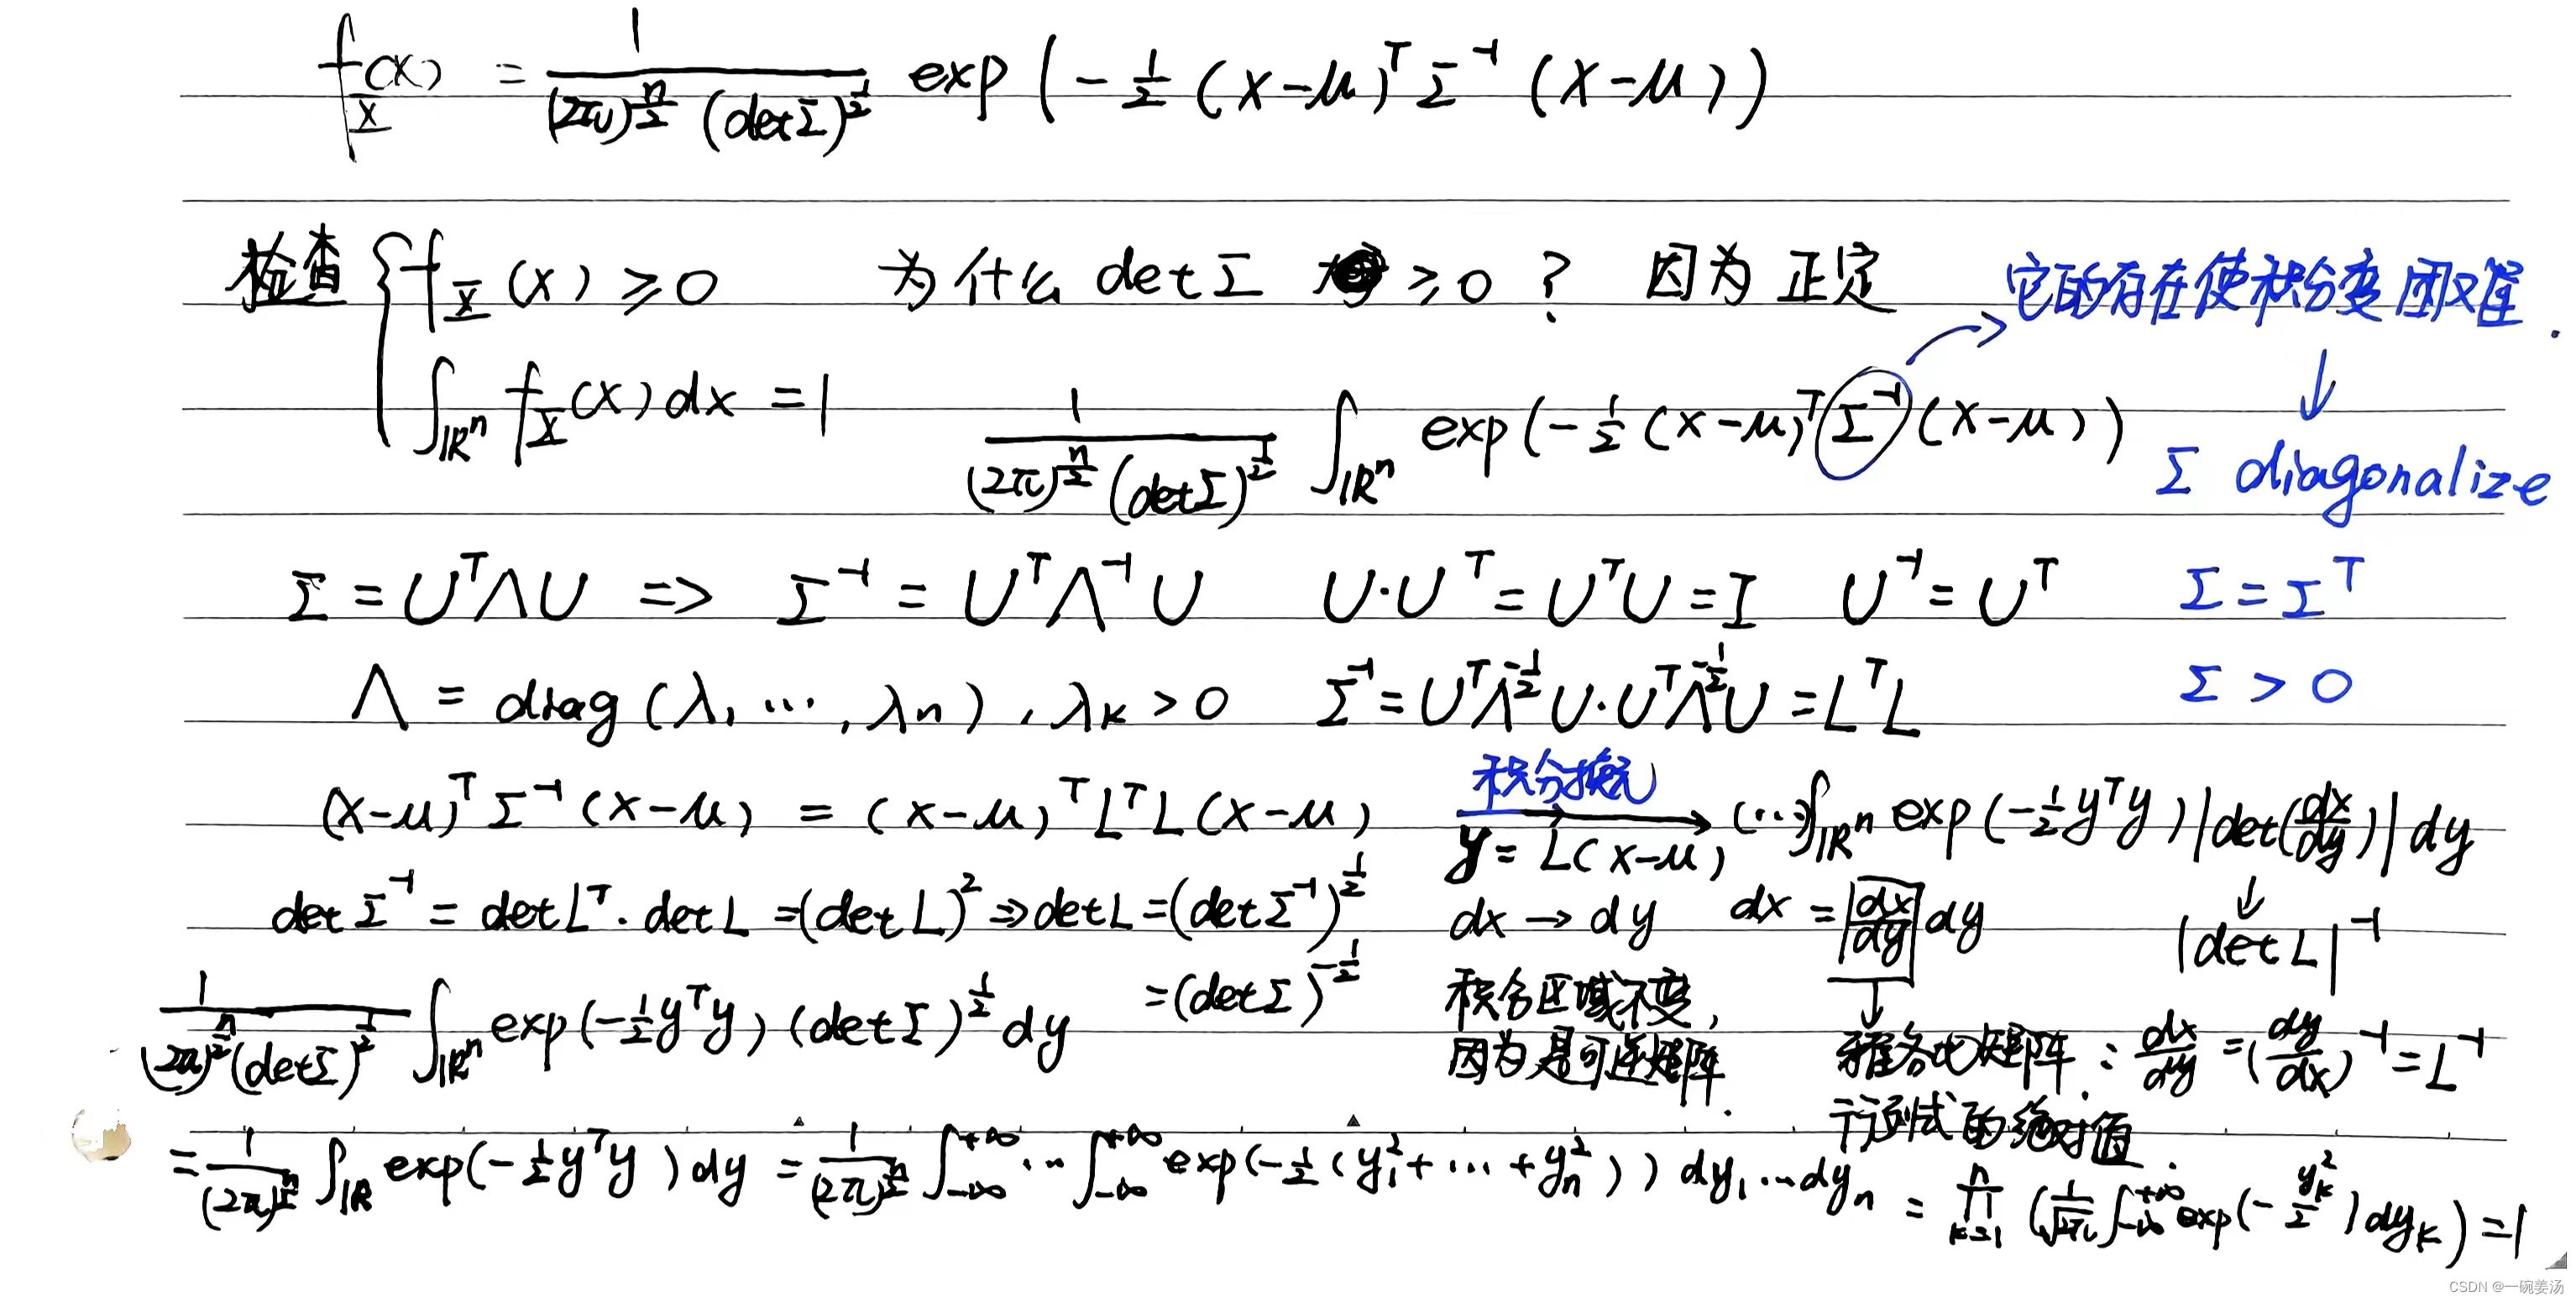 f_X(x) = 1/((2π)^{n/2} (detΣ)^{1/2}) exp(-1/2 (x-μ)^T Σ^{-1} (x-μ))
检查 { f_X(x) ≥ 0 为什么 detΣ ≥ 0 ? 因为 正定 它的存在使积分变困难.
∫_{ℝ^n} f_X(x) dx = 1 1/((2π)^{n/2} (detΣ)^{1/2}) ∫_{ℝ^n} exp(-1/2 (x-μ)^T Σ^{-1} (x-μ))
↓
Σ diagonalize
Σ = U^TΛU => Σ^{-1} = U^TΛ^{-1}U U·U^T = U^TU = I U^{-1} = U^T Σ = Σ^T
Λ = diag(λ_1 ..., λ_n), λ_k > 0 Σ^{-1} = U^TΛ^{-1/2}U·U^TΛ^{-1/2}U = L^TL Σ > 0
(x-μ)^T Σ^{-1} (x-μ) = (x-μ)^T L^T L (x-μ) 积分换元 → (...)∫_{ℝ^n} exp(-1/2 y^T y) |det(dx/dy)| dy
y = L(x-μ)
↓
|det L|^{-1}
det Σ^{-1} = det L^T · det L = (det L)^2 => det L = (det Σ^{-1})^{1/2} dx → dy dx = |dx/dy| dy
= (detΣ)^{-1/2}
1/((2π)^{n/2} (detΣ)^{1/2}) ∫_{ℝ^n} exp(-1/2 y^T y) (detΣ)^{1/2} dy
积分区域不变,
因为是可逆矩阵.
↓
雅各比矩阵: dx/dy = (dy/dx)^{-1} = L^{-1}
行列式的绝对值.
= 1/(2π)^{n/2} ∫_{ℝ} exp(-1/2 y^T y) dy = 1/(2π)^{n/2} ∫_{-∞}^{+∞} ... ∫_{-∞}^{+∞} exp(-1/2 (y_1^2 + ... + y_n^2)) dy_1 ... dy_n = ∏_{k=1}^{n} (1/√2π ∫_{-∞}^{+∞} exp(-y_k^2/2) dy_k) = 1
CSDN @一碗姜汤